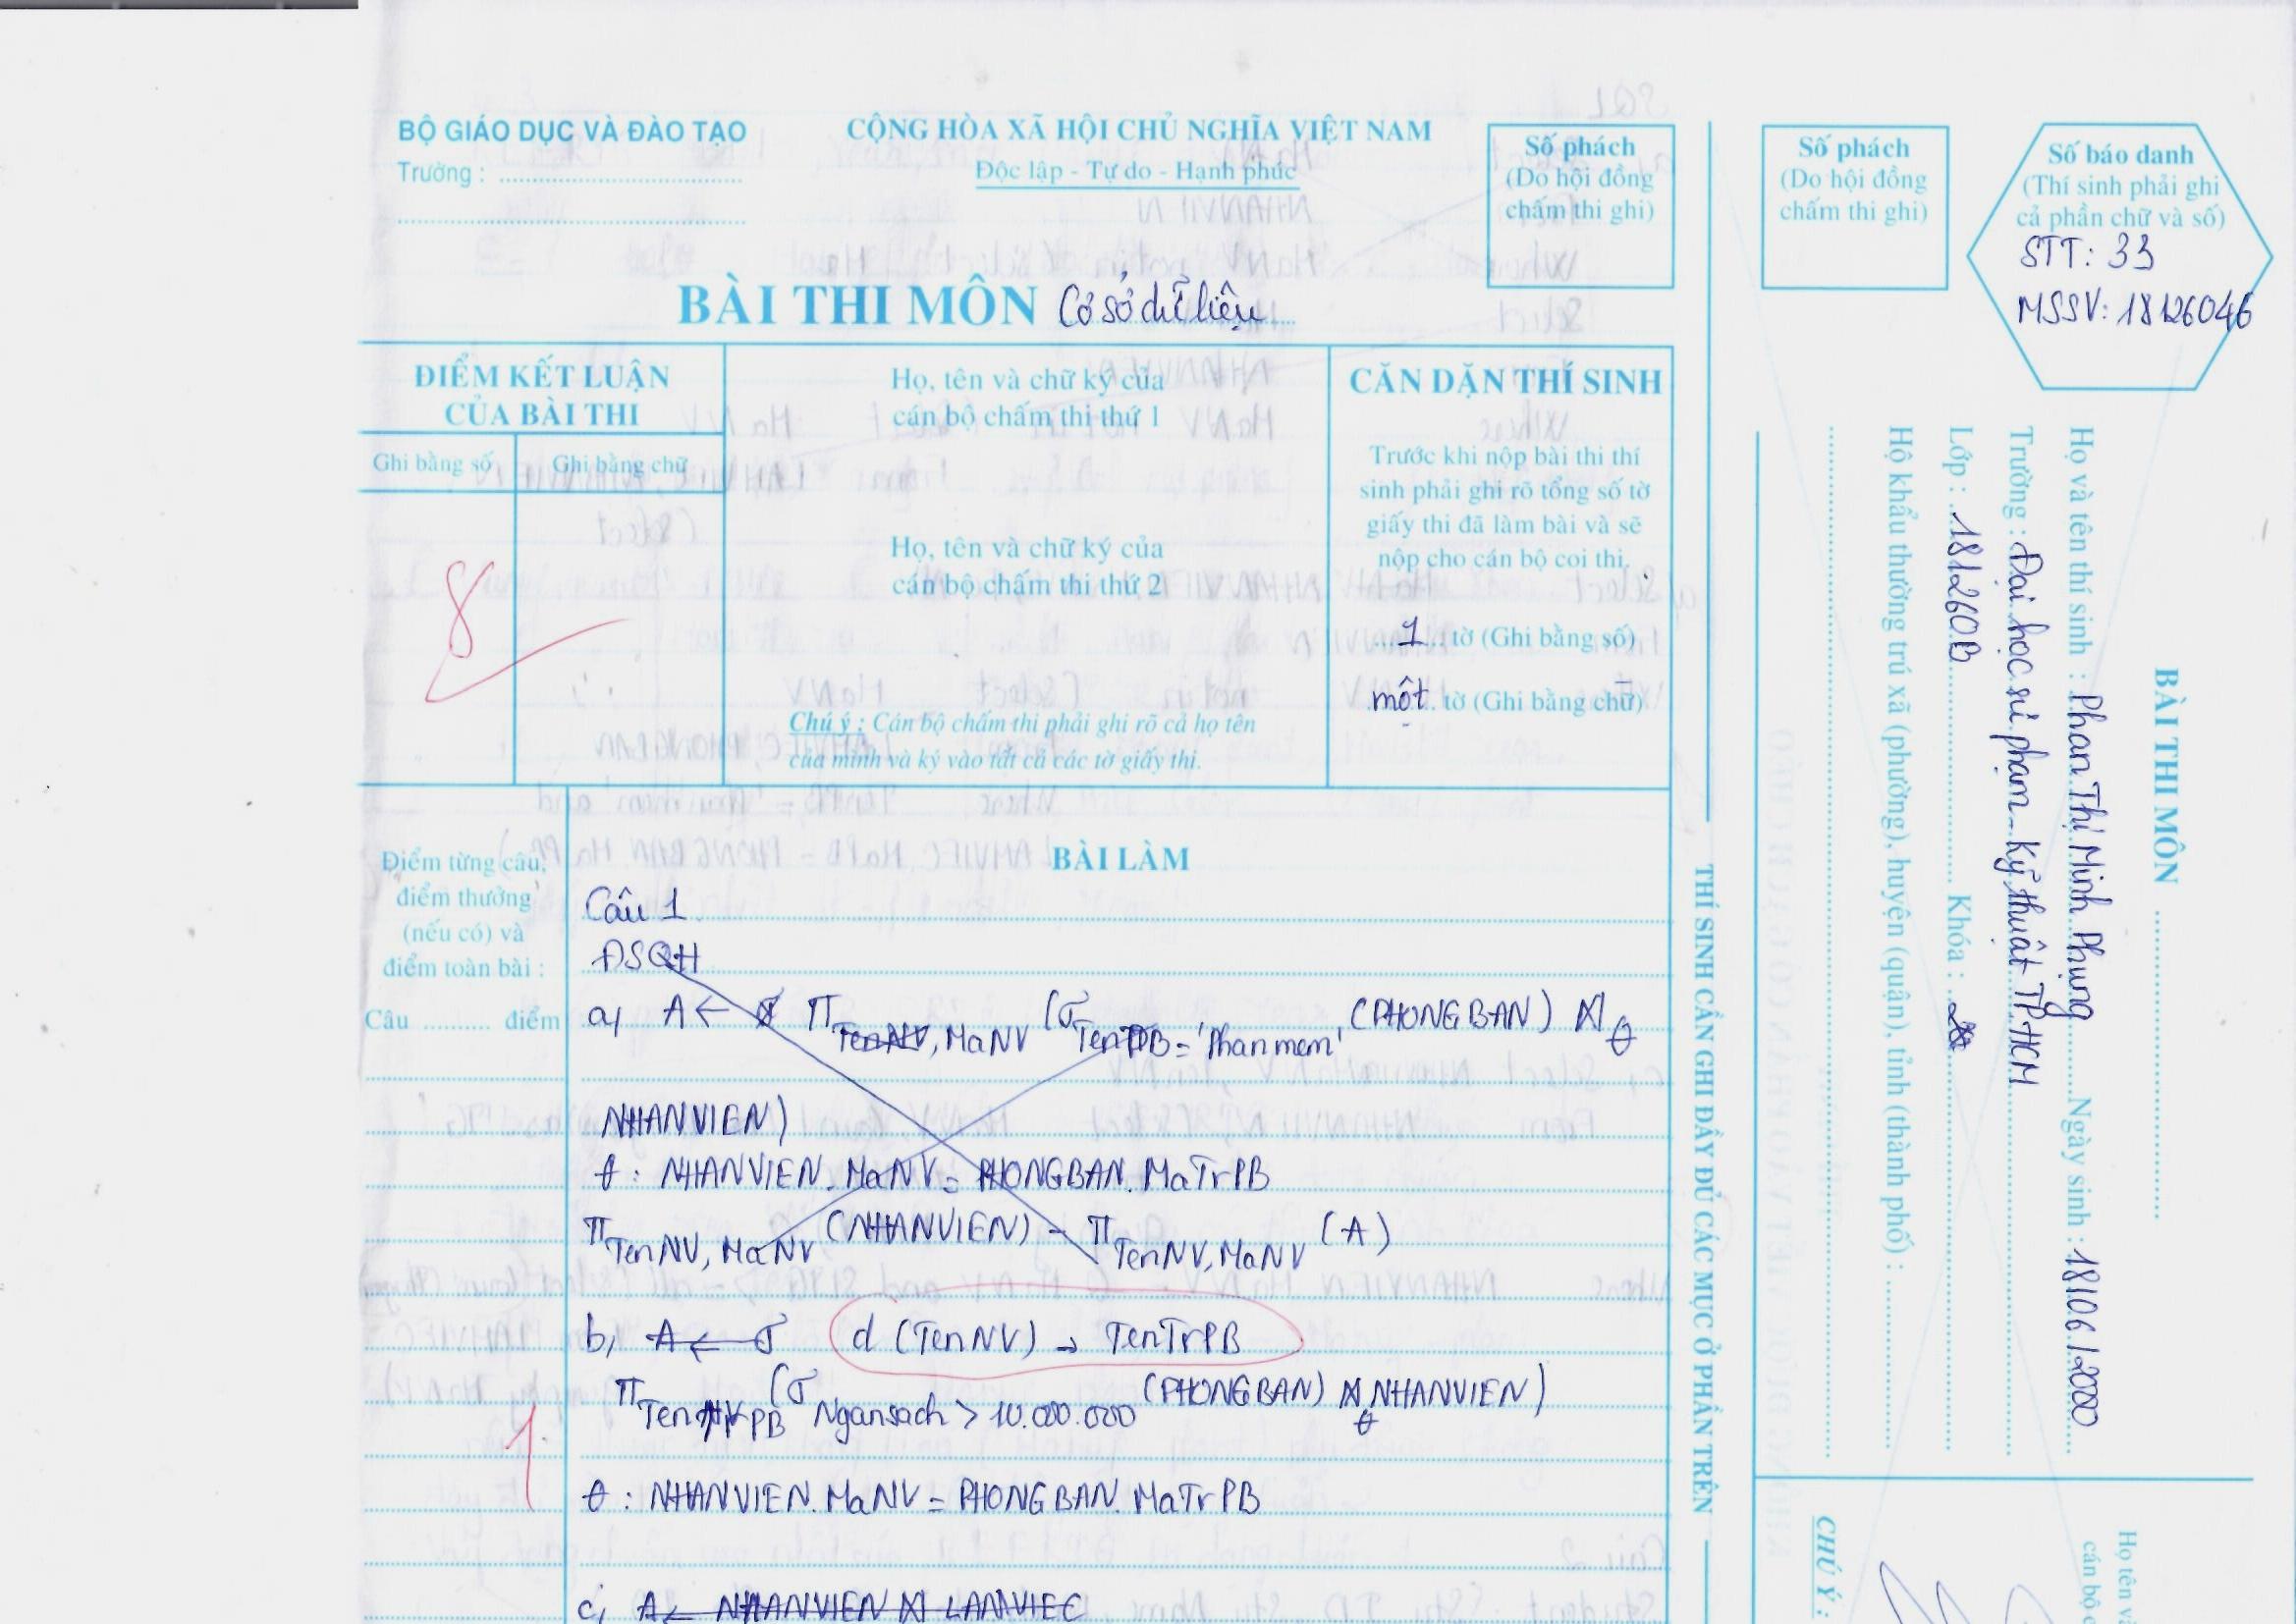 BỘ GIÁO DỤC VÀ ĐÀO TẠO
Trường : ........................
CỘNG HÒA XÃ HỘI CHỦ NGHĨA VIỆT NAM
Độc lập - Tự do - Hạnh phúc
Số phách
(Do hội đồng
chấm thi ghi)
BÀI THI MÔN Cơ sở dữ liệu
ĐIỂM KẾT LUẬN
CỦA BÀI THI
Ghi bằng số
Ghi bằng chữ
8
Họ, tên và chữ ký của
cán bộ chấm thi thứ 1
Họ, tên và chữ ký của
cán bộ chấm thi thứ 2
Chú ý : Cán bộ chấm thi phải ghi rõ cả họ tên
của mình và ký vào tất cả các tờ giấy thi.
CĂN DẶN THÍ SINH
Trước khi nộp bài thi thí
sinh phải ghi rõ tổng số tờ
giấy thi đã làm bài và sẽ
nộp cho cán bộ coi thi.
1 tờ (Ghi bằng số)
một tờ (Ghi bằng chữ)
Điểm từng câu,
điểm thưởng
(nếu có) và
điểm toàn bài :
Câu .......... điểm
1
BÀI LÀM
Câu 1
ĐSQH
a, A ← π TenNV, MaNV (σ TenPB = 'Phan mem' (PHONGBAN) ⋈ θ
NHANVIEN)
θ : NHANVIEN.MaNV = PHONGBAN.MaTrPB
π TenNV, MaNV (NHANVIEN) - π TenNV, MaNV (A)
b, A ← σ d (TenNV) → TenTrPB
π TenTrPB (σ Ngansach > 10.000.000 (PHONGBAN) ⋈ θ NHANVIEN)
θ : NHANVIEN.MaNV = PHONGBAN.MaTrPB
c, A ← NHANVIEN ⋈ LAMVIEC
THÍ SINH CẦN GHI ĐẦY ĐỦ CÁC MỤC Ở PHẦN TRÊN
Số phách
(Do hội đồng
chấm thi ghi)
Số báo danh
(Thí sinh phải ghi
cả phần chữ và số)
STT: 33
MSSV: 18126046
BÀI THI MÔN ........................
Họ và tên thí sinh : Phan Thị Minh Phụng Ngày sinh : 18/06/2000
Trường : Đại học sư phạm - Kỹ thuật TPHCM
Lớp : 181260B Khóa :
Hộ khẩu thường trú xã (phường), huyện (quận), tỉnh (thành phố) : ............
Họ tên và
cán bộ c
CHÚ Ý :